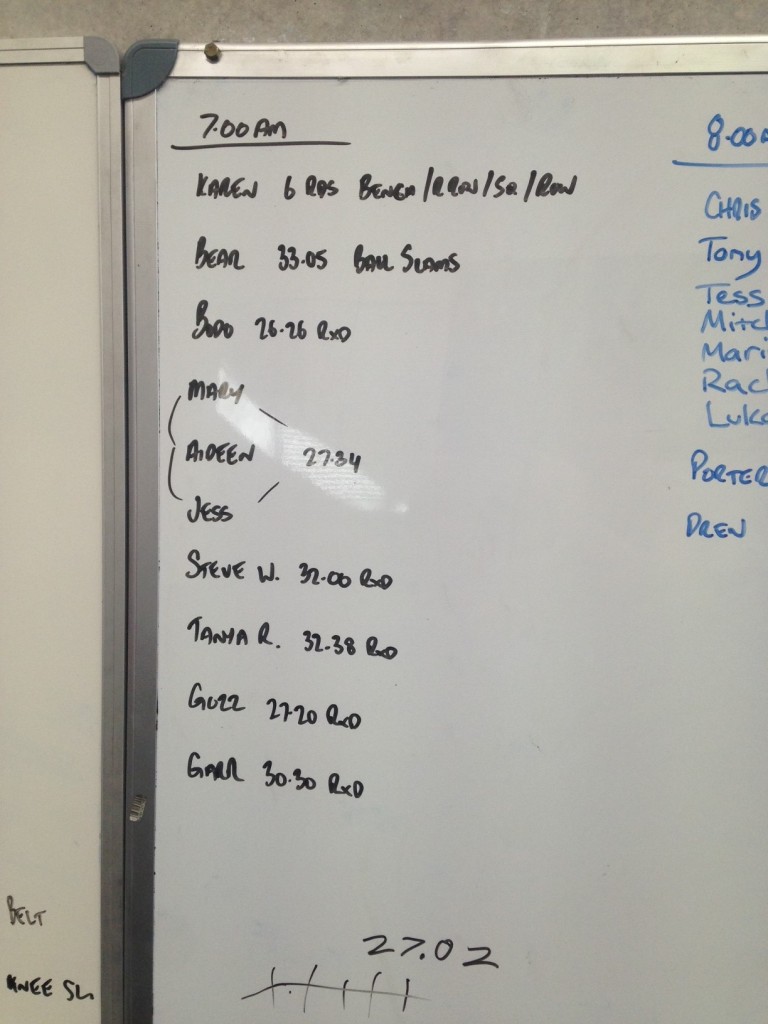 7.00 AM
KAREN 6 RDS /SQ/ROW
BEAR 33.05 BALL SLAMS
BODO 26.26 RXD
MARY
AIDEEN 27.34
JESS
STEVE W. 32.00 RXD
TANYA R. 32.38 RXD
GUZZ 27.20 RXD
GARR 30.30 RXD
27.02
8.00A
CHRIS
Tony
Tess
Mitc
Mari
Rac
Luka
PORTER
DREN
BELT
KNEE SL